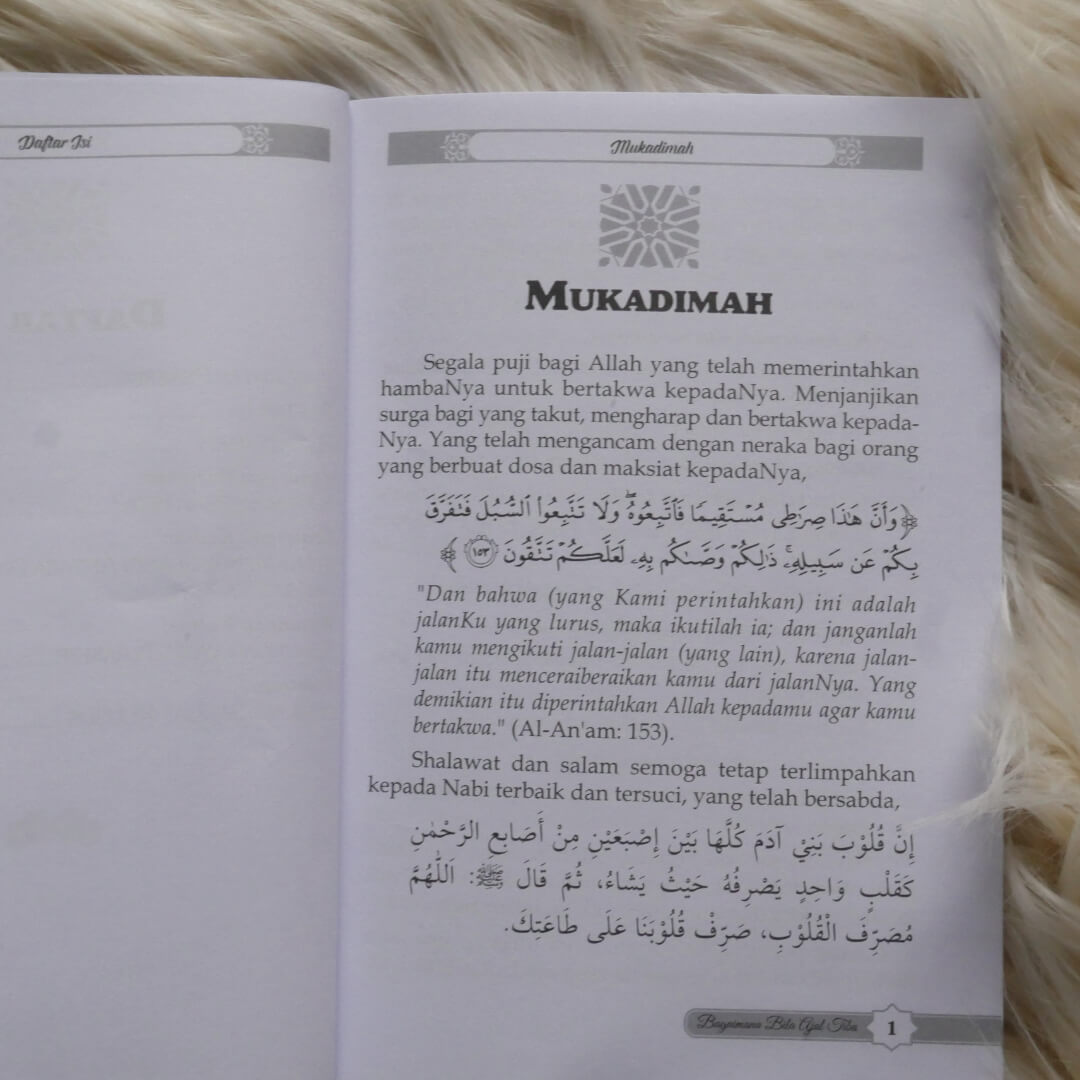 Daftar Isi
Mukadimah
MUKADIMAH
Segala puji bagi Allah yang telah memerintahkan
hambaNya untuk bertakwa kepadaNya. Menjanjikan
surga bagi yang takut, mengharap dan bertakwa kepada-
Nya. Yang telah mengancam dengan neraka bagi orang
yang berbuat dosa dan maksiat kepadaNya,
﴿وَأَنَّ هَٰذَا صِرَٰطِى مُسْتَقِيمًا فَٱتَّبِعُوهُ ۖ وَلَا تَتَّبِعُوا۟ ٱلسُّبُلَ فَتَفَرَّقَ
بِكُمْ عَن سَبِيلِهِۦ ۚ ذَٰلِكُمْ وَصَّىٰكُم بِهِۦ لَعَلَّكُمْ تَتَّقُونَ ١٥٣﴾
"Dan bahwa (yang Kami perintahkan) ini adalah
jalanKu yang lurus, maka ikutilah ia; dan janganlah
kamu mengikuti jalan-jalan (yang lain), karena jalan-
jalan itu menceraiberaikan kamu dari jalanNya. Yang
demikian itu diperintahkan Allah kepadamu agar kamu
bertakwa." (Al-An'am: 153).
Shalawat dan salam semoga tetap terlimpahkan
kepada Nabi terbaik dan tersuci, yang telah bersabda,
إِنَّ قُلُوْبَ بَنِيْ آدَمَ كُلَّهَا بَيْنَ إِصْبَعَيْنِ مِنْ أَصَابِعِ الرَّحْمٰنِ
كَقَلْبٍ وَاحِدٍ يَصْرِفُهُ حَيْثُ يَشَاءُ، ثُمَّ قَالَ ﷺ: اَللّٰهُمَّ
مُصَرِّفَ الْقُلُوْبِ، صَرِّفْ قُلُوْبَنَا عَلَى طَاعَتِكَ.
Bagaimana Bila Ajal Tiba 1